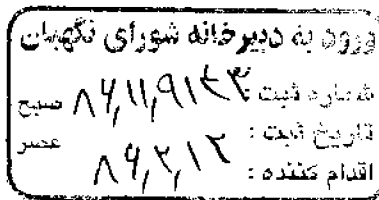 ورود به دبیرخانه شورای نگهبان
شماره ثبت : صبح
تاریخ ثبت : ۸۶,۲,۱۲ عصر
اقدام کننده :